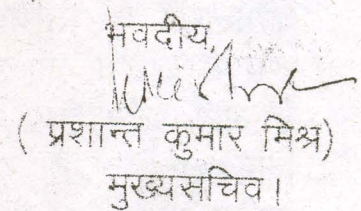 भवदीय,
( प्रशान्त कुमार मिश्र)
मुख्यसचिव।